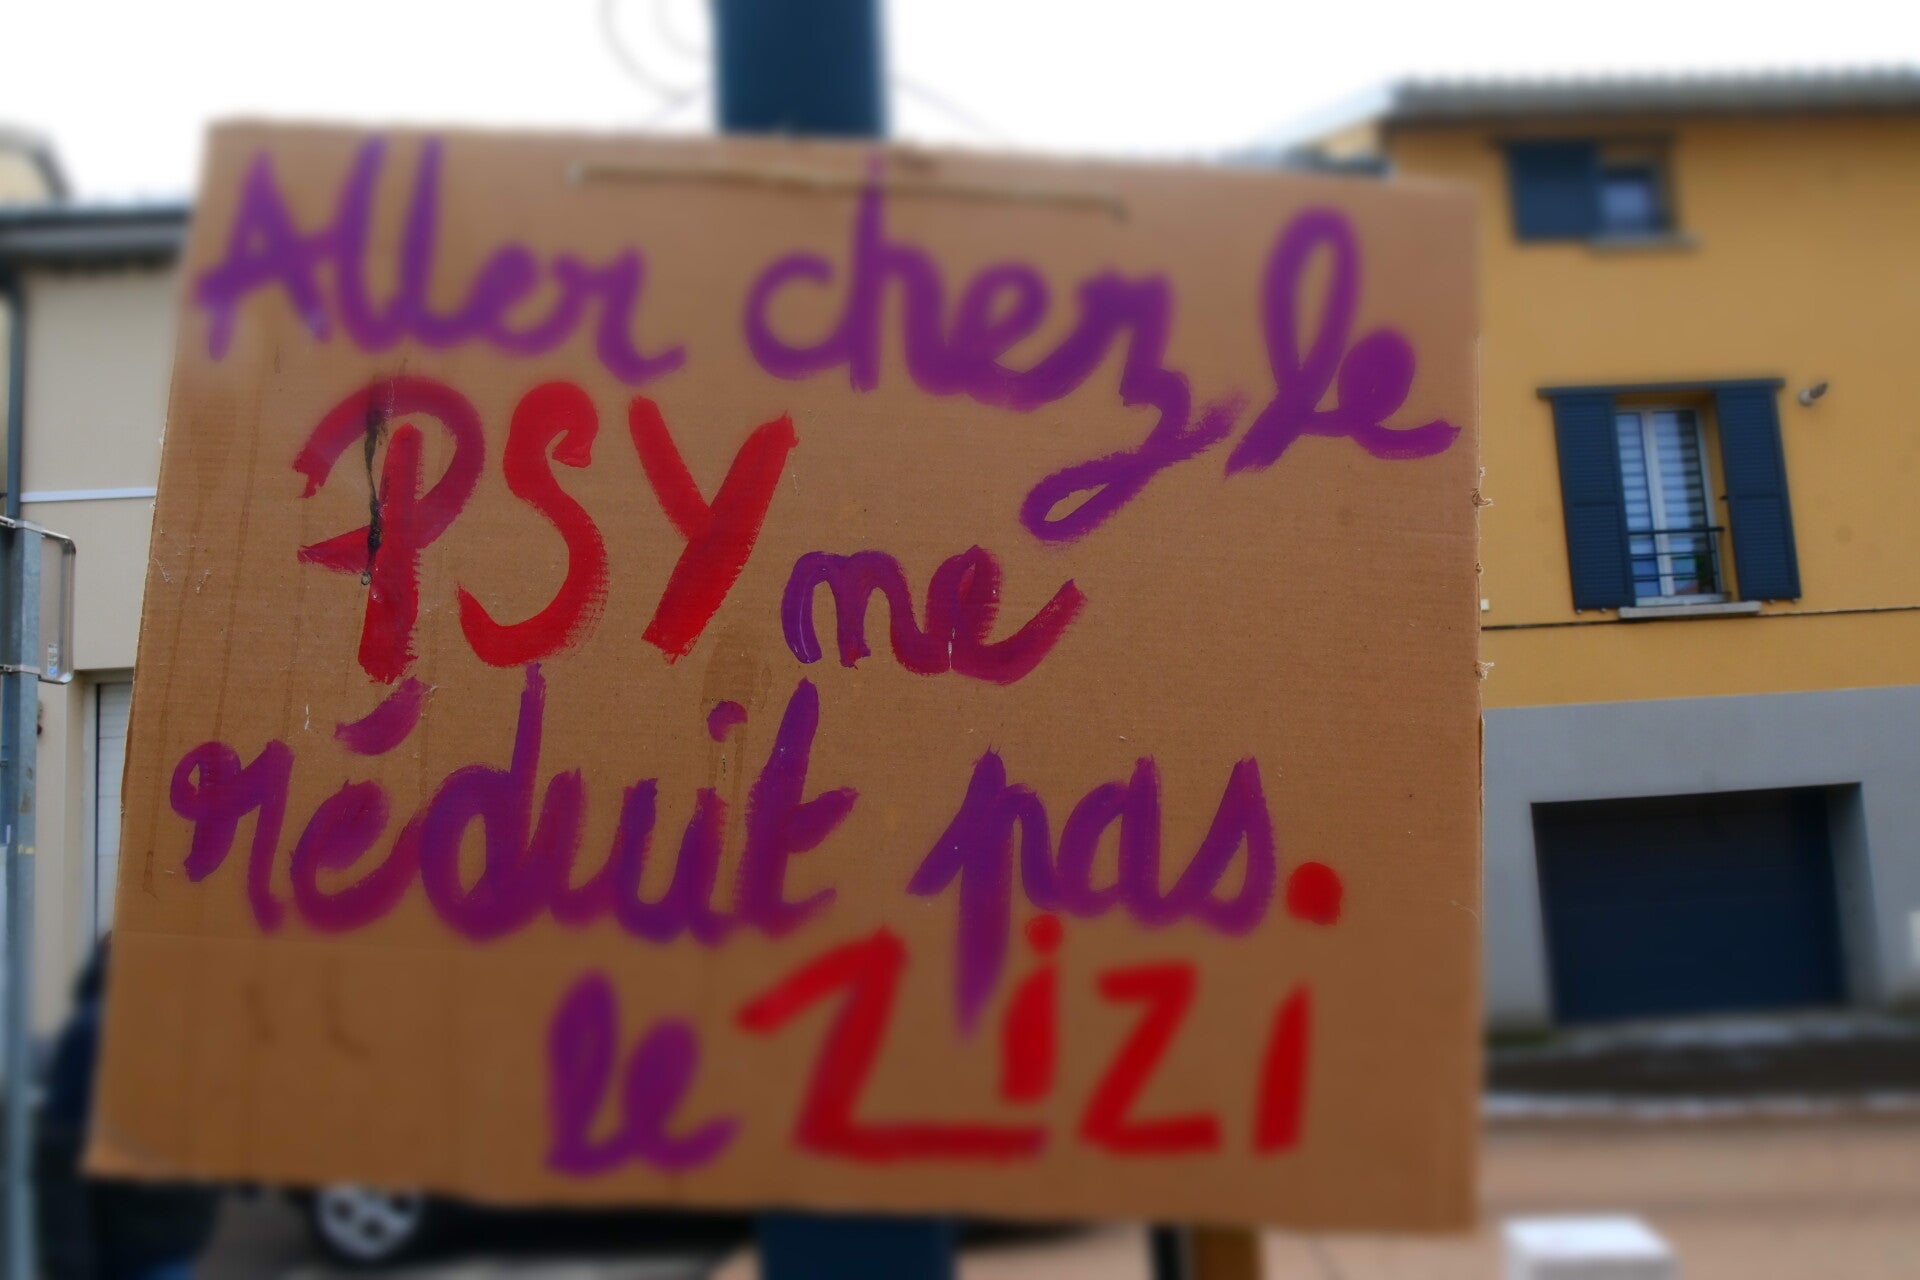 Aller chez le
PSY ne
réduit pas.
le ZiZi